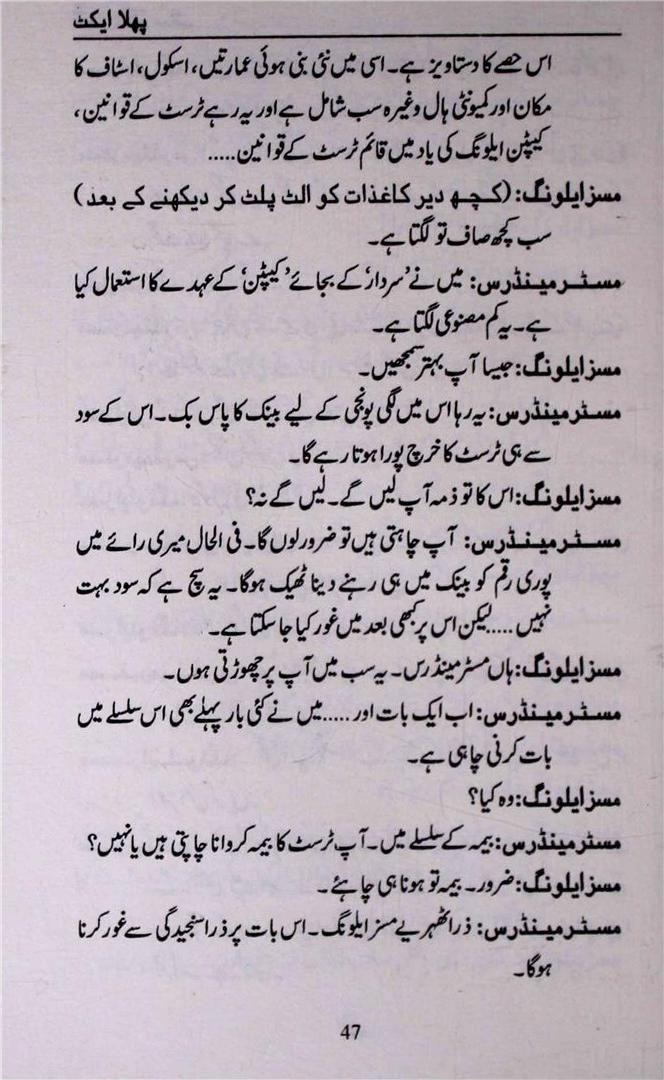 پہلا ایکٹ
اس حصے کا دستاویز ہے۔ اسی میں نئی بنی ہوئی عمارتیں، اسکول، اسٹاف کا
مکان اور کمیونٹی ہال وغیرہ سب شامل ہے اور یہ رہے ٹرسٹ کے قوانین،
کیپٹن ایلونگ کی یاد میں قائم ٹرسٹ کے قوانین.....
مسز ایلونگ: (کچھ دیر کاغذات کو الٹ پلٹ کر دیکھنے کے بعد)
سب کچھ صاف تو لگتا ہے۔
مسٹر مینڈرس: میں نے ’سردار‘ کے بجائے ’کیپٹن‘ کے عہدے کا استعمال کیا
ہے۔ یہ کم مصنوعی لگتا ہے۔
مسز ایلونگ: جیسا آپ بہتر سمجھیں۔
مسٹر مینڈرس: یہ رہا اس میں لگی پونجی کے لیے بینک کا پاس بک۔ اس کے سود
سے ہی ٹرسٹ کا خرچ پورا ہوتا رہے گا۔
مسز ایلونگ: اس کا تو ذمہ آپ لیں گے۔ لیں گے نہ؟
مسٹر مینڈرس: آپ چاہتی ہیں تو ضرور لوں گا۔ فی الحال میری رائے میں
پوری رقم کو بینک میں ہی رہنے دینا ٹھیک ہوگا۔ یہ سچ ہے کہ سود بہت
نہیں.....لیکن اس پر کبھی بعد میں غور کیا جا سکتا ہے۔
مسز ایلونگ: ہاں مسٹر مینڈرس۔ یہ سب میں آپ پر چھوڑتی ہوں۔
مسٹر مینڈرس: اب ایک بات اور.....میں نے کئی بار پہلے بھی اس سلسلے میں
بات کرنی چاہی ہے۔
مسز ایلونگ: وہ کیا؟
مسٹر مینڈرس: بیمہ کے سلسلے میں۔ آپ ٹرسٹ کا بیمہ کروانا چاہتی ہیں یا نہیں؟
مسز ایلونگ: ضرور۔ بیمہ تو ہونا ہی چاہئے۔
مسٹر مینڈرس: ذرا ٹھہریے مسز ایلونگ۔ اس بات پر ذرا سنجیدگی سے غور کرنا
ہوگا۔
47